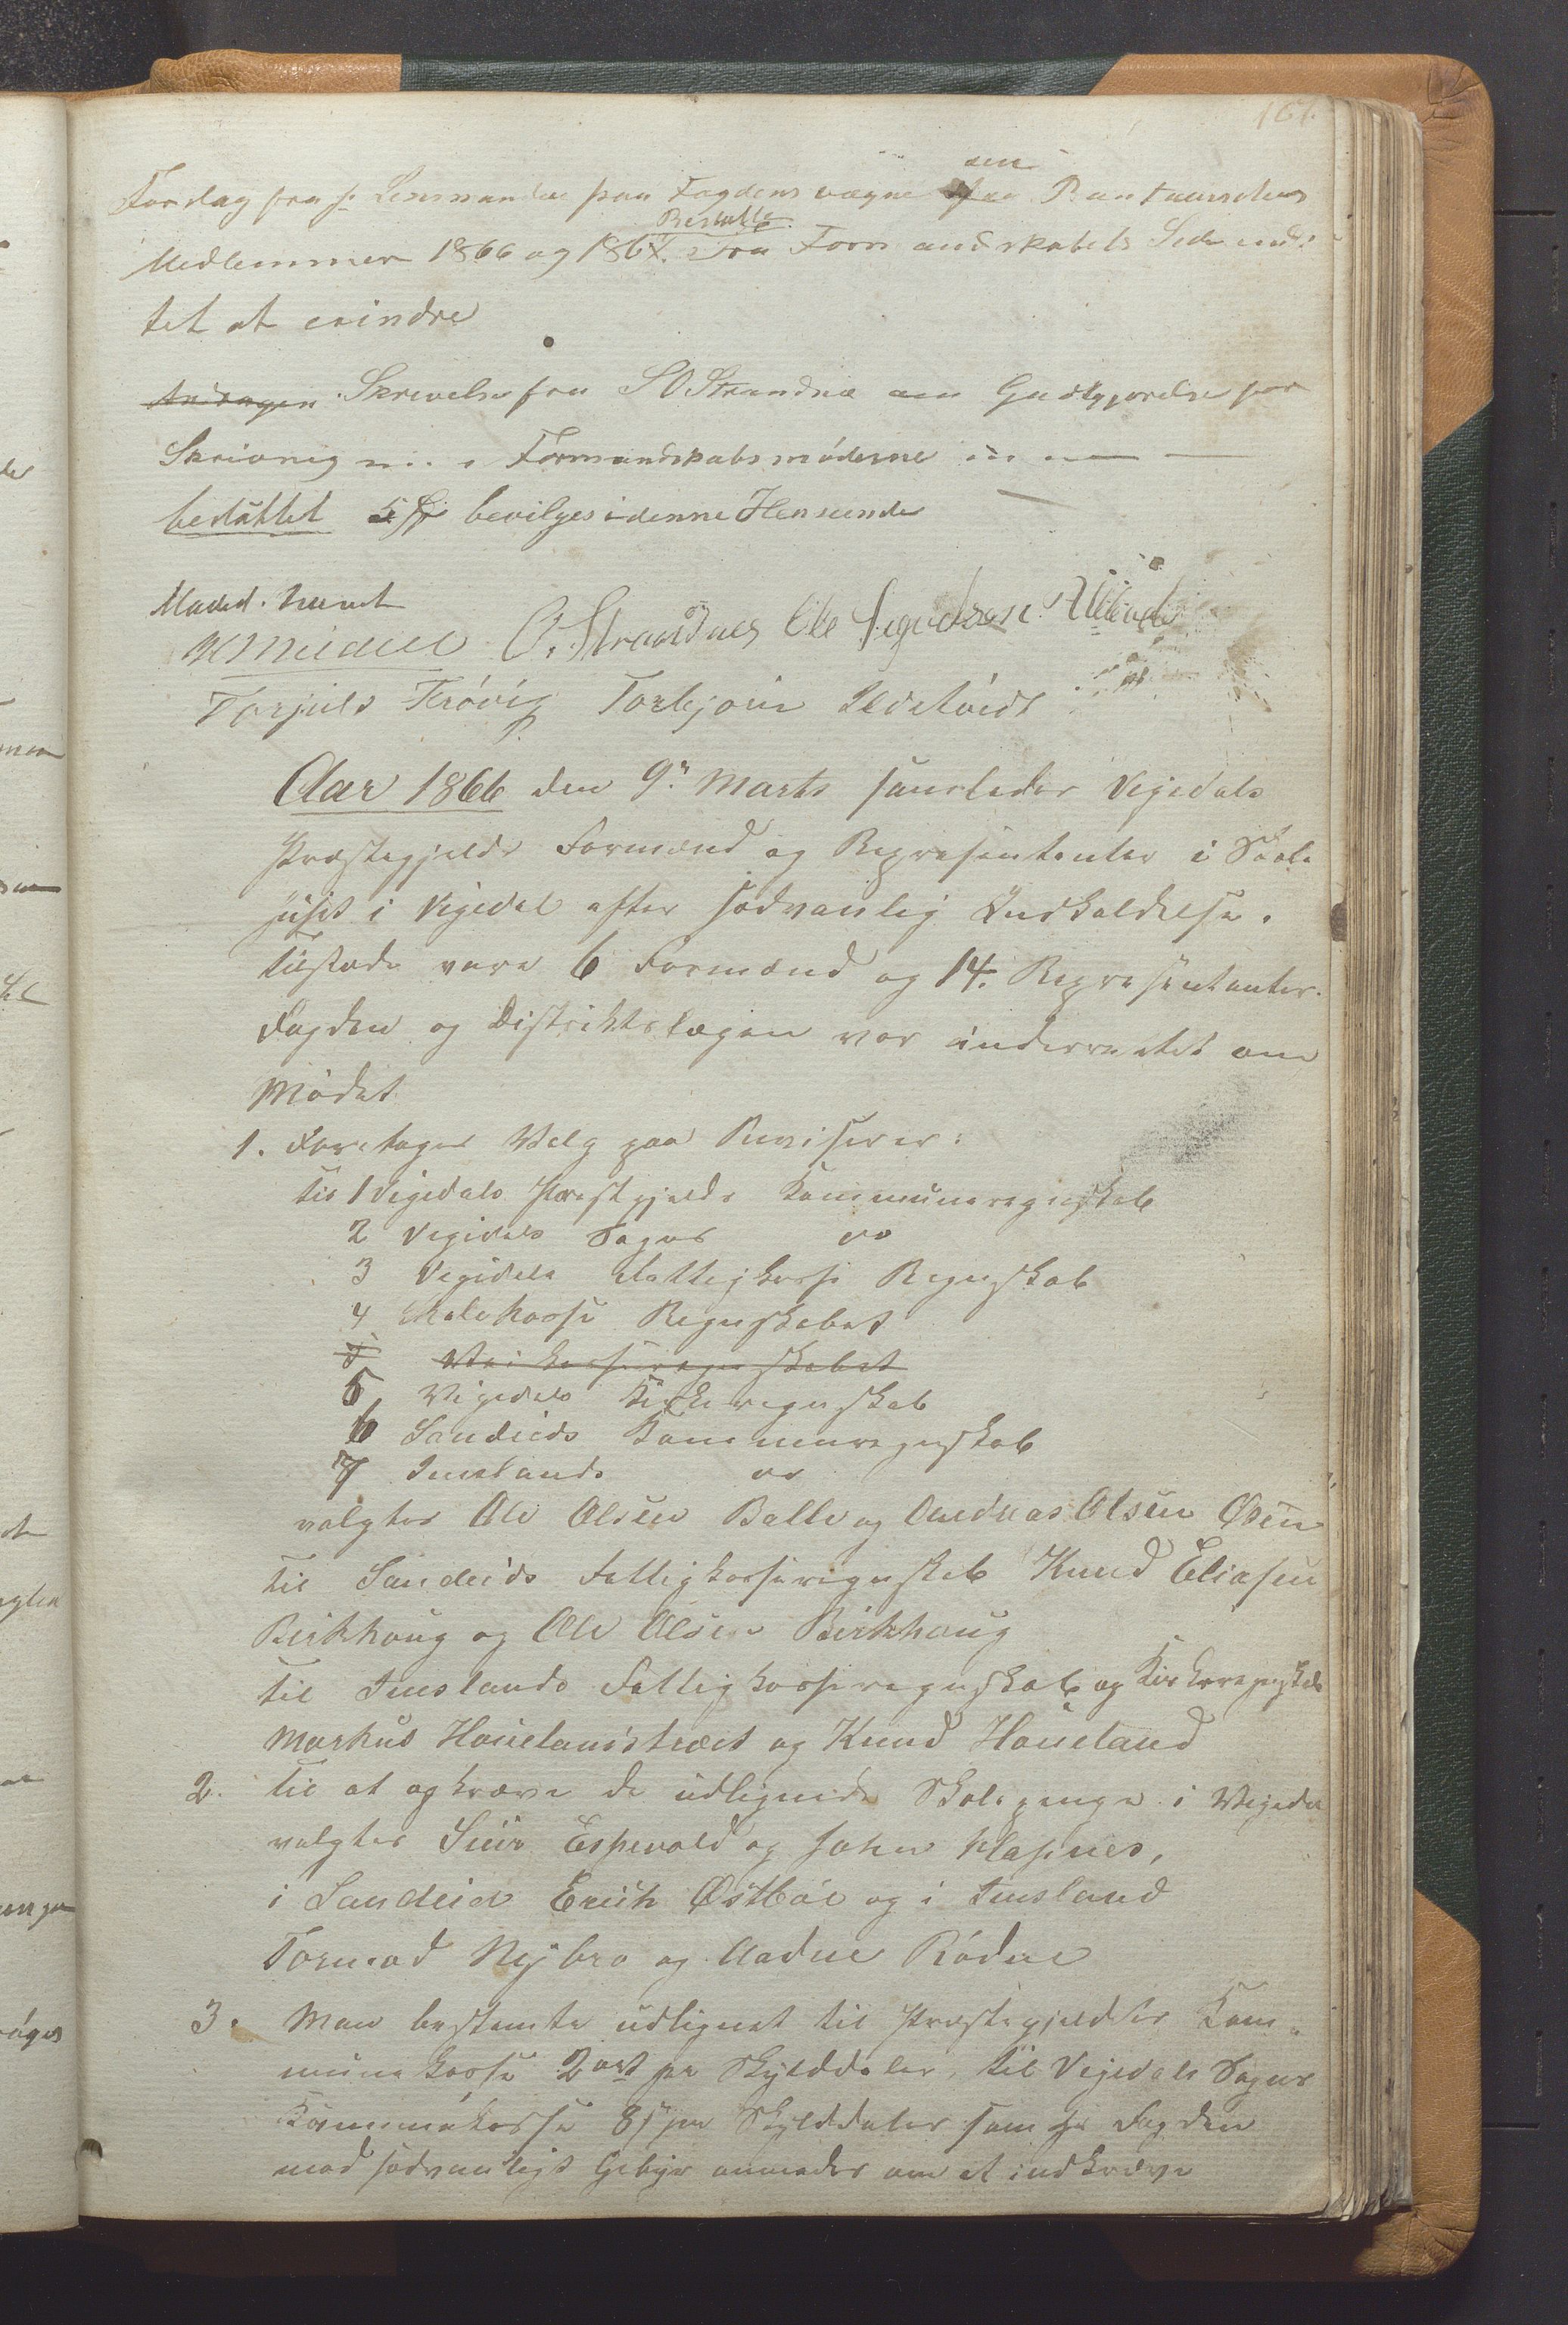 161.
Forslag fra Lensmanden paa Fogdens vegne om
Medlemmer 1866 og 1867. Besluttet Fra Formandskabets Side in-
tet at erindre
Andragen Skrivelse fra S O Strandnæ om Godtgjørelse for
Skrivning Formandskabsmøderne
besluttet 5 bevilges i denne Henseende
Møded. hævet
O. Strandnes Ole Sjurdsen
Torjuls Frövig Torbjörn
Aar 1866 den 9n Marts samledes Vigedals
Præstegjelds Formænd og Repræsentanter i Skole
huset i Vigedal efter sædvanlig Indkaldelse.
Tilstede vare 6 Formænd og 14. Repræsentanter.
Fogden og Distriktslægen var underrettet om
Mödet
1. Foretages Valg paa Revisorer:
til 1 Vigedals Præstgjelds Kommuneregnskab
2 Vigedals Sogns do
3 Vigedals Fattigkasse Regnskab
4 Skolekasse Regnskabet
5 Veikasseregnskabet
5 Vigedals Kirkeregnskab
6 Sandeids Kommuneregnskab
7 Imslands do
valgtes Ole Olsen Balle og Andreas Olsen Øien
til Sandeids Fattigkasseregnskab Knud Eliasen
Birkhoug og Ole Olsen Birkhoug
til Imslands Fattigkasseregnskab og Kirkeregnskab
Markus Houelandstræet og Knud Houeland
2. til at opkræve de udlignede Skolepenge i Vigedal
valgtes Siur Espevold og John
i Sandeid Erik Östböe og i Imsland
Tormod Nybro og Aadne Rödne
3. Man bestemte udlignet til Præstegjeldets Kom-
munekasse 2 ort pr Skylddaler, til Vigedals Sogns
Kommunekasse 8 s pr Skylddaler som Fogden
mod sædvanligt Gebyr anmodes om at indkræve